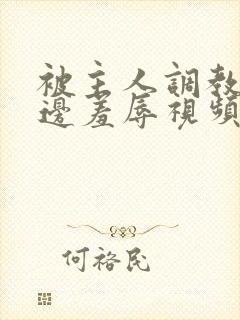 被主人調教
邊羞辱視頻
何裕民